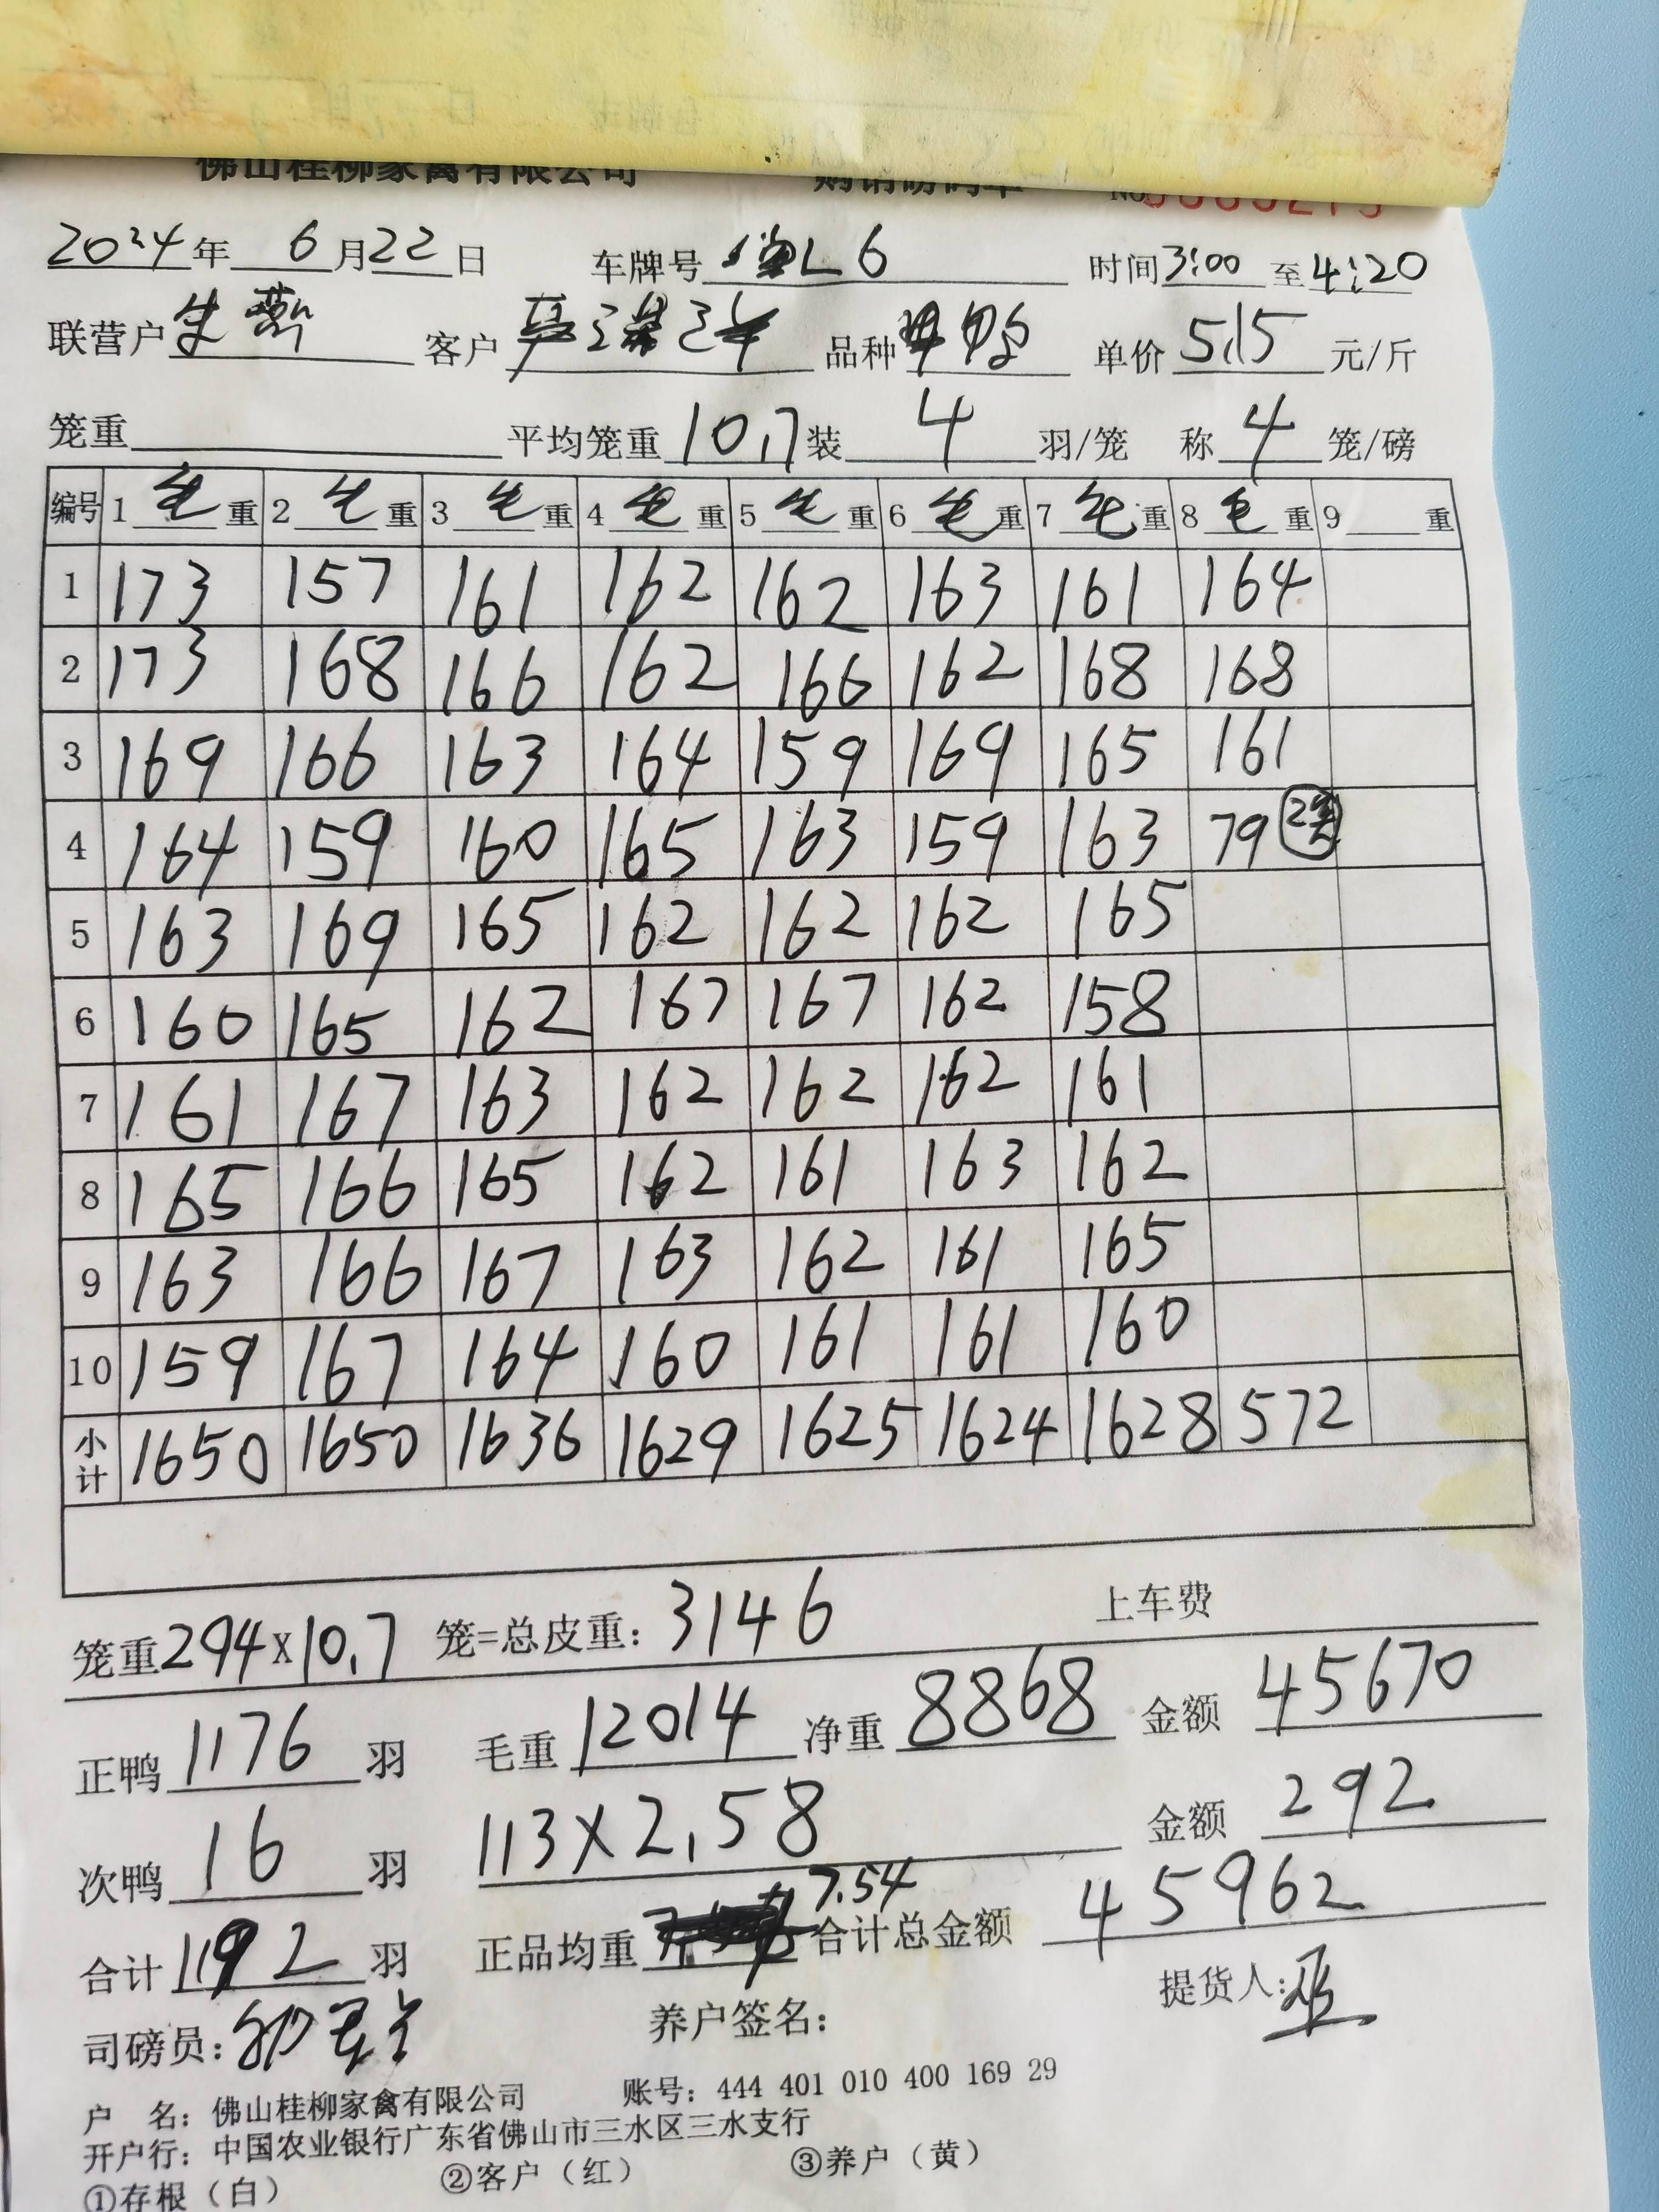 佛山桂柳家禽有限公司 购销磅码单 NO
2024年 6月22日 车牌号 L6 时间3:00至4:20
联营户 客户 品种 单价5.15元/斤
笼重 平均笼重10.7装4羽/笼 称4笼/磅
编号 1毛重 2毛重 3毛重 4毛重 5毛重 6毛重 7毛重 8毛重 9重
1 173 157 161 162 162 163 161 164
2 173 168 166 162 166 162 168 168
3 169 166 163 164 159 169 165 161
4 164 159 160 165 163 159 163 79 2笼
5 163 169 165 162 162 162 165
6 160 165 162 167 167 162 158
7 161 167 163 162 162 162 161
8 165 166 165 162 161 163 162
9 163 166 167 163 162 161 165
10 159 167 164 160 161 161 160
小计 1650 1650 1636 1629 1625 1624 1628 572
笼重294×10.7 笼=总皮重：3146 上车费
正鸭1176羽 毛重12014 净重8868 金额45670
次鸭16羽 113×2.58 金额292
合计1192羽 正品均重 7.54 合计总金额45962
司磅员： 养户签名： 提货人：
户 名：佛山桂柳家禽有限公司 账号：444 401 010 400 169 29
开户行：中国农业银行广东省佛山市三水区三水支行
①存根（白） ②客户（红） ③养户（黄）